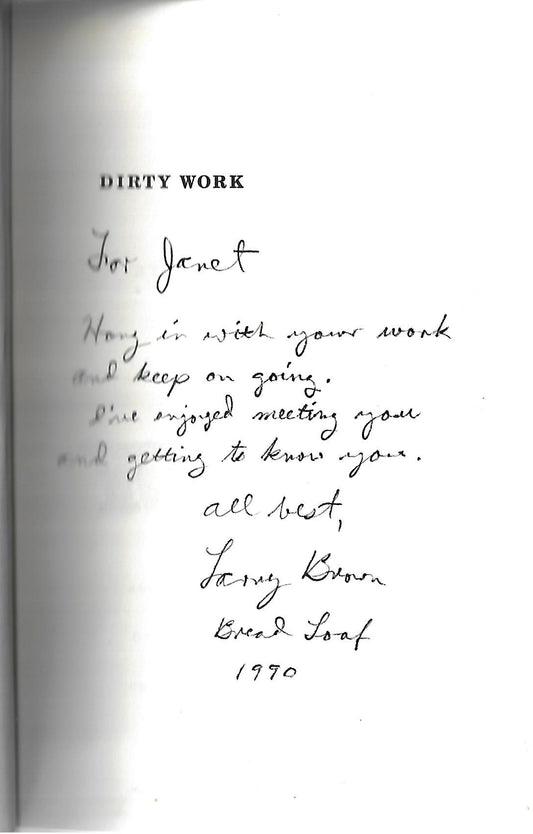 DIRTY WORK
For Janet
Hang in with your work
and keep on going.
I've enjoyed meeting you
and getting to know you.
all best,
Larry Brown
Bread Loaf
1990